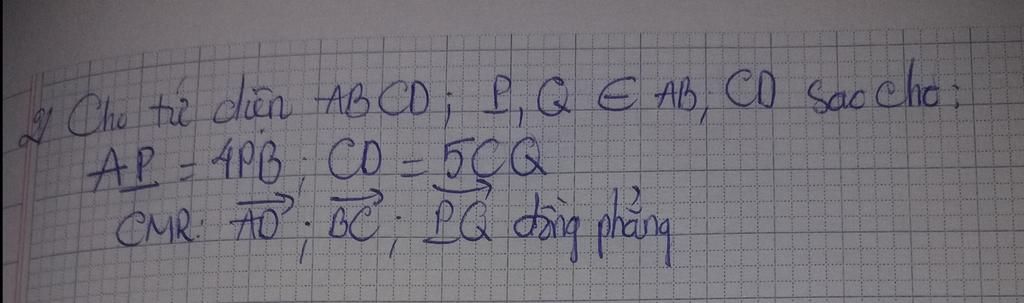 2) Cho tứ diện ABCD; P, Q ∈ AB, CD sao cho:
AP = 4PB; CD = 5CQ
CMR: \overrightarrow{AD}; \overrightarrow{BC}; \overrightarrow{PQ} đồng phẳng